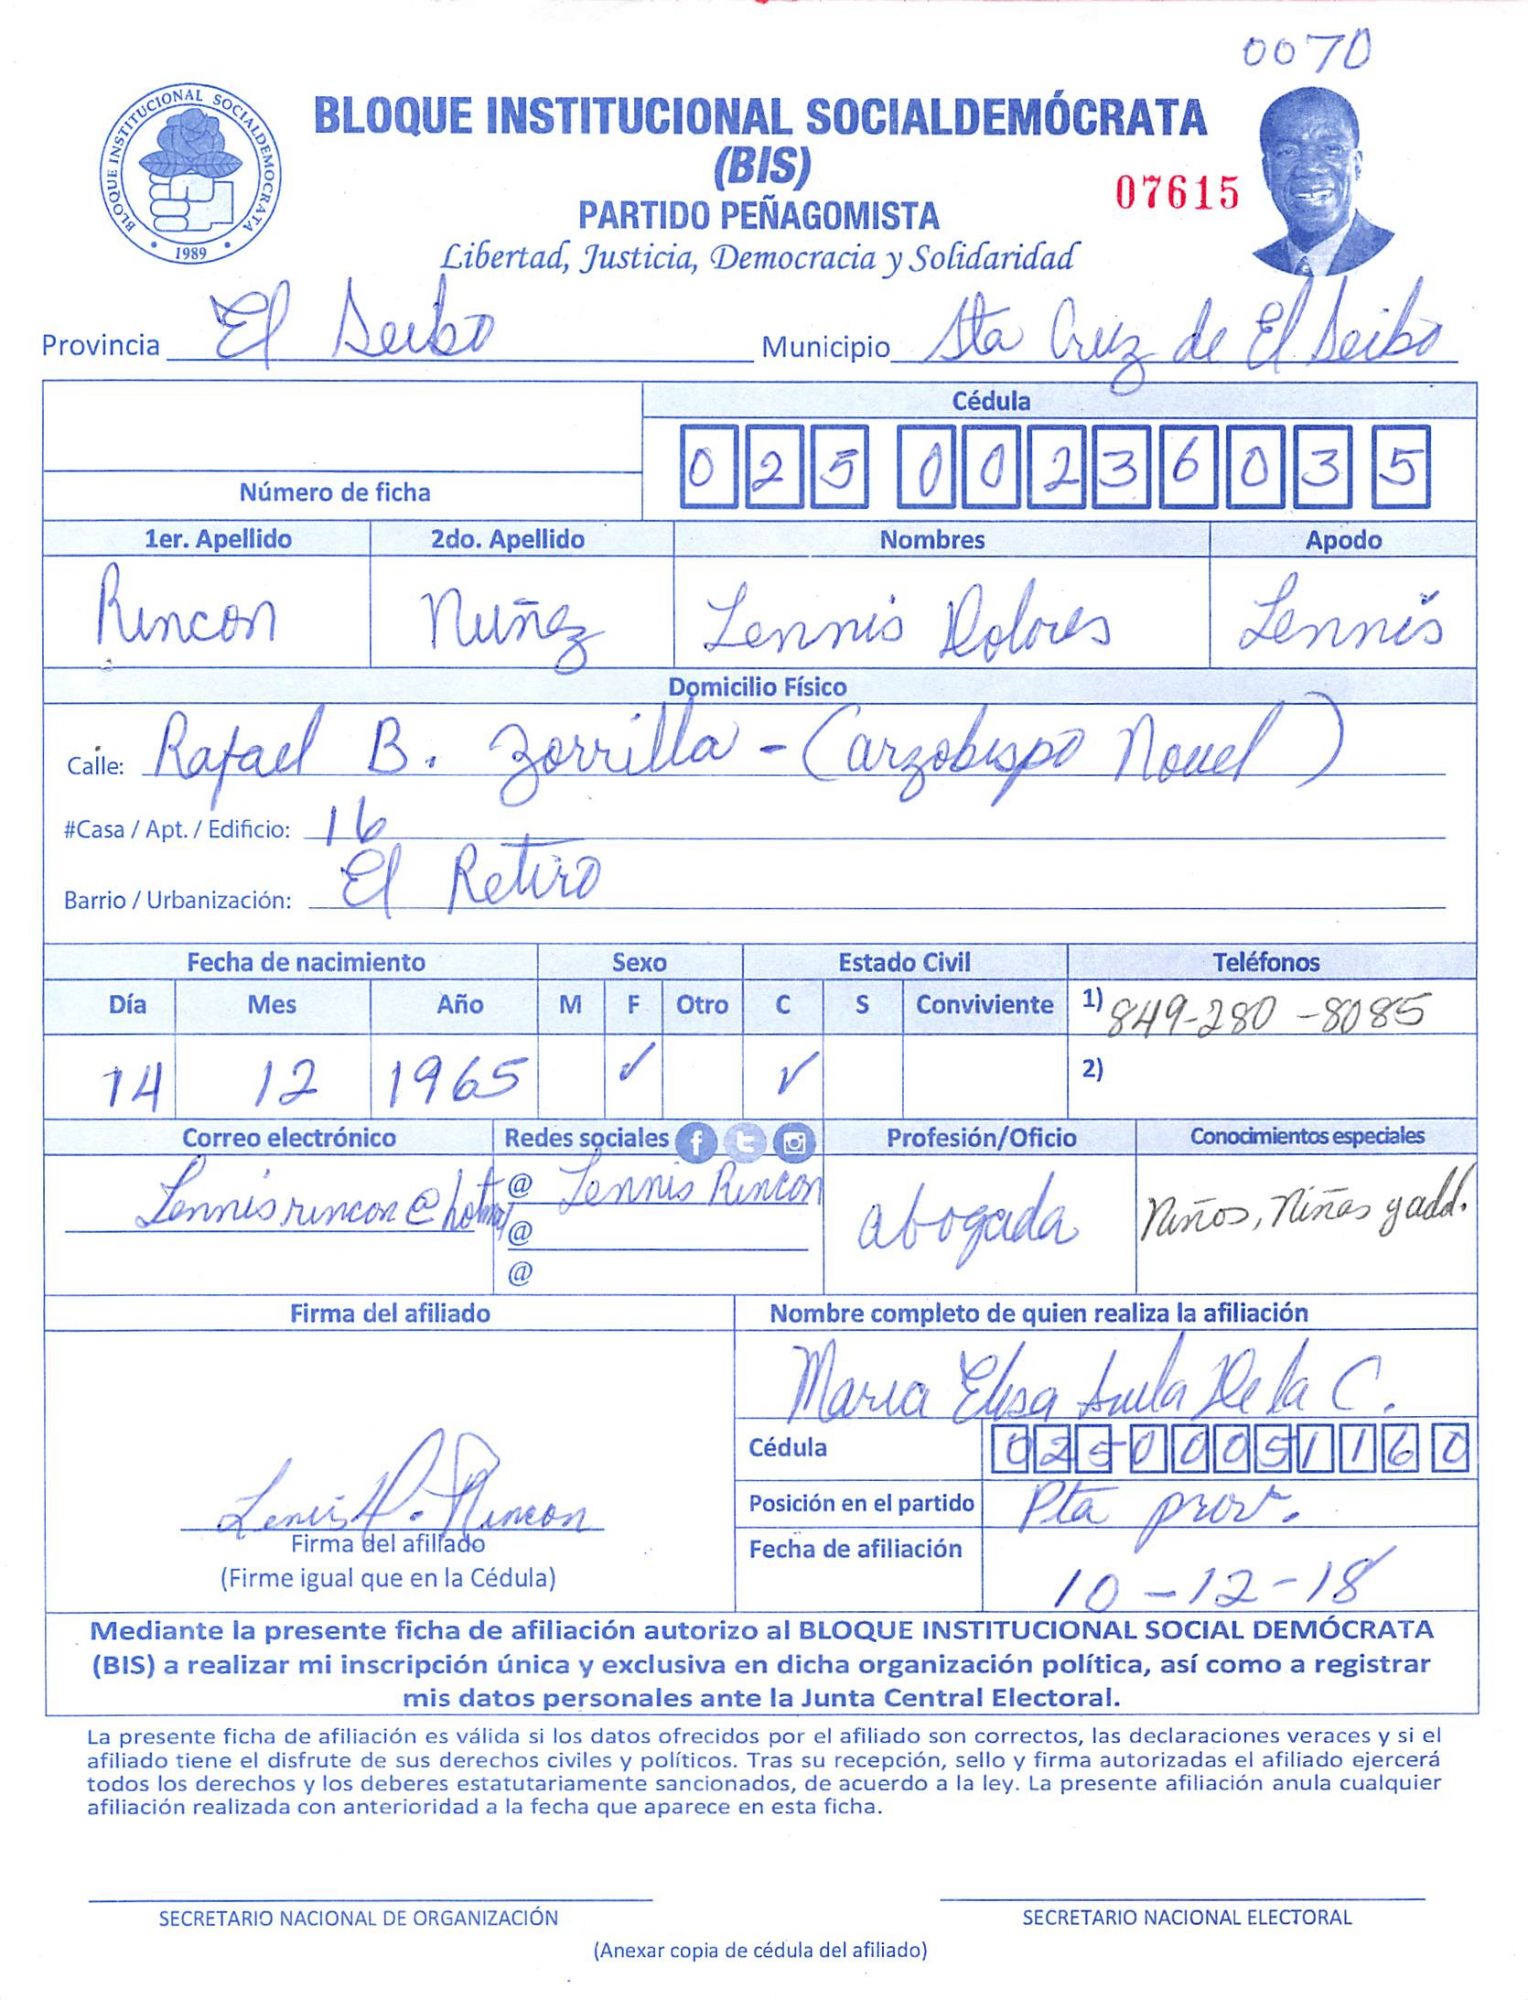 0070
BLOQUE INSTITUCIONAL SOCIALDEMÓCRATA
BLOQUE INSTITUCIONAL SOCIALDEMÓCRATA
(BIS)
1989
07615
PARTIDO PEÑAGOMISTA
Libertad, Justicia, Democracia y Solidaridad
Provincia El Seibo Municipio Sta Cruz de El Seibo
Cédula
025 0023603 5
Número de ficha
1er. Apellido 2do. Apellido Nombres Apodo
Rincon Nuñez Lennis Dolores Lennis
Domicilio Físico
Calle: Rafael B. Zorrilla - (arzobispo Nouel)
#Casa / Apt. / Edificio: 16
Barrio / Urbanización: El Retiro
Fecha de nacimiento Sexo Estado Civil Teléfonos
Día Mes Año M F Otro C S Conviviente 1) 849-280-8085
14 12 1965 ✓ ✓ 2)
Correo electrónico Redes sociales Profesión/Oficio Conocimientos especiales
Lennisrincon@hotmail @ Lennis Rincon abogada Niños, Niñas y add.
@
@
Firma del afiliado Nombre completo de quien realiza la afiliación
Maria Elisa Avila De la C.
Cédula 025 0005116 0
Posición en el partido Pta prov.
Lennis D. Rincon
Firma del afiliado
(Firme igual que en la Cédula)
Fecha de afiliación 10-12-18
Mediante la presente ficha de afiliación autorizo al BLOQUE INSTITUCIONAL SOCIAL DEMÓCRATA
(BIS) a realizar mi inscripción única y exclusiva en dicha organización política, así como a registrar
mis datos personales ante la Junta Central Electoral.
La presente ficha de afiliación es válida si los datos ofrecidos por el afiliado son correctos, las declaraciones veraces y si el
afiliado tiene el disfrute de sus derechos civiles y políticos. Tras su recepción, sello y firma autorizadas el afiliado ejercerá
todos los derechos y los deberes estatutariamente sancionados, de acuerdo a la ley. La presente afiliación anula cualquier
afiliación realizada con anterioridad a la fecha que aparece en esta ficha.
SECRETARIO NACIONAL DE ORGANIZACIÓN SECRETARIO NACIONAL ELECTORAL
(Anexar copia de cédula del afiliado)